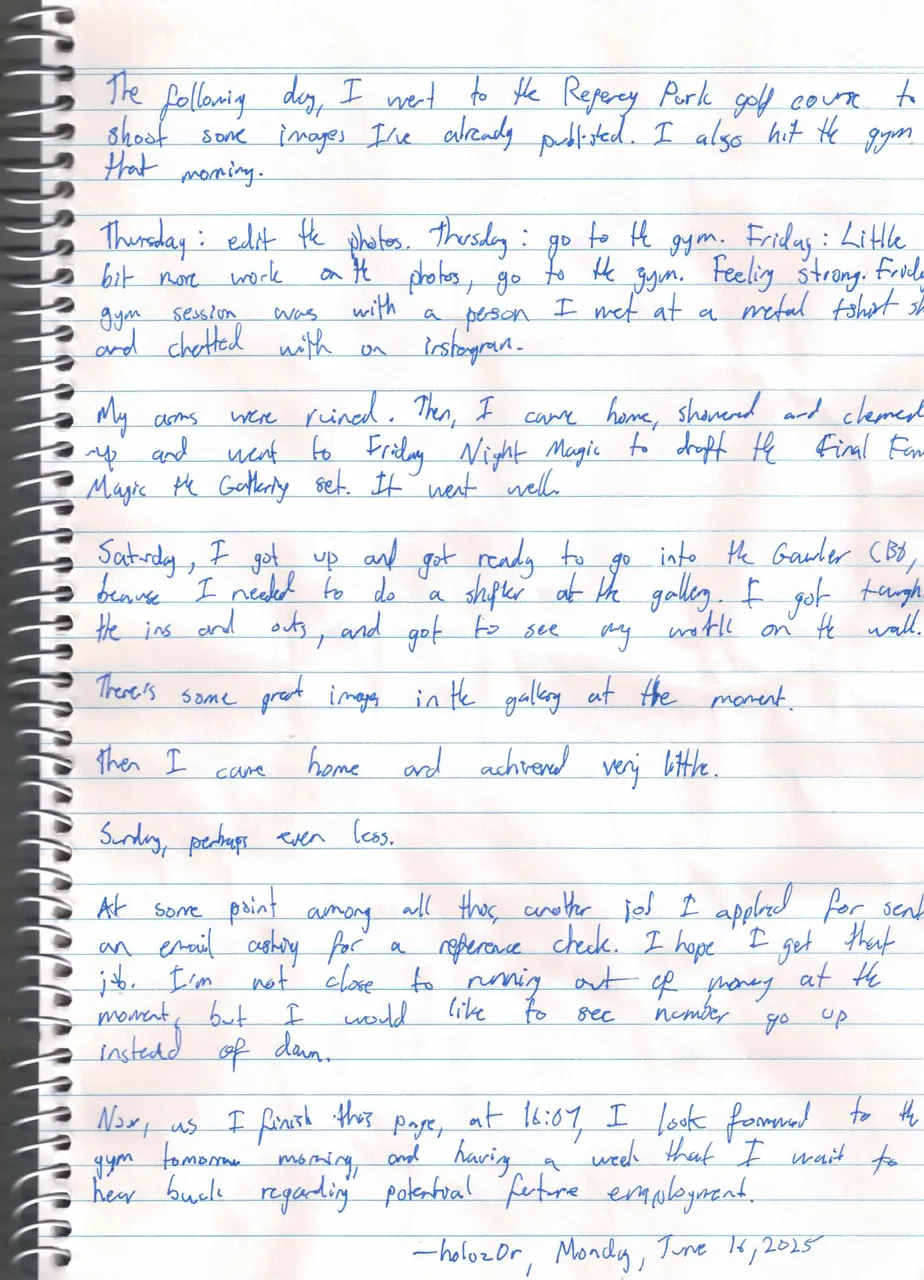 The following day, I went to the Regency Park golf course to
shoot some images I've already published. I also hit the gym
that morning.
Thursday: edit the photos. Thursday: go to the gym. Friday: Little
bit more work on the photos, go to the gym. Feeling strong. Frida
gym session was with a person I met at a metal tshirt sh
and chatted with on instagram.
My arms were ruined. Then, I came home, showered and cleaned
up and went to Friday Night Magic to draft the Final Fan
Magic the Gathering set. It went well.
Saturday, I got up and got ready to go into the Gawler CBD,
because I needed to do a shifter at the gallery. I got taugh
the ins and outs, and got to see my work on the wall.
There's some great images in the gallery at the moment.
Then I came home and achieved very little.
Sunday, perhaps even less.
At some point among all this, another job I applied for sent
an email asking for a reference check. I hope I get that
job. I'm not close to running out of money at the
moment, but I would like to see number go up
instead of down.
Now, as I finish this page, at 16:07, I look forward to the
gym tomorrow morning, and having a week that I wait to
hear back regarding potential future employment.
—holoz0r, Monday, June 16, 2025